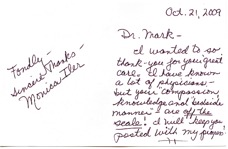 Oct. 21, 2009
Dr. Mark -
I wanted to so
thank-you for your great
care. I have known
a lot of physicians -
but your compassion,
knowledge and bedside
manner - are off the
scale! I will keep you
posted with my
Fondly -
Sincere Thanks -
Monica Iler